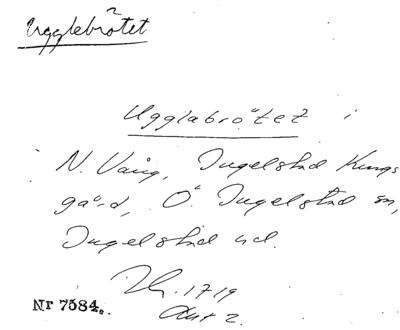 Ugglebråtet
Ugglabrötet i
N. Vång, Ingelstad Kungs
gård, Ö. Ingelstad sn,
Ingelstad hd.
1719
Akt 2.
Nr 7584.